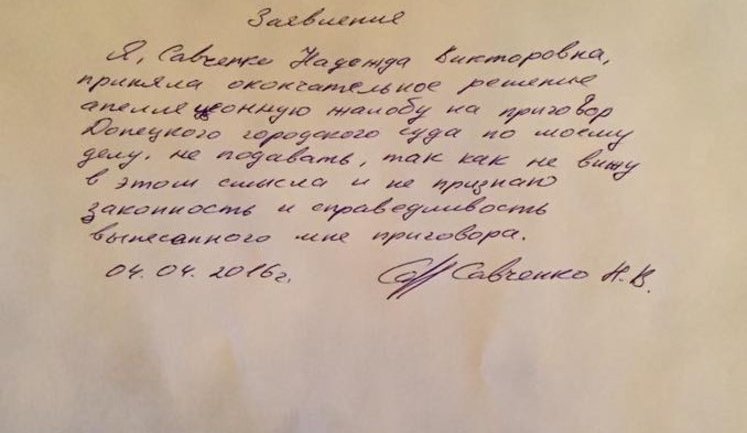 Заявление
Я, Савченко Надежда Викторовна,
приняла окончательное решение
апелляционную жалобу на приговор
Донецкого городского суда по моему
делу, не подавать, так как не вижу
в этом смысла и не признаю
законность и справедливость
вынесанного мне приговора.
04.04.2016г. Савченко Н.В.